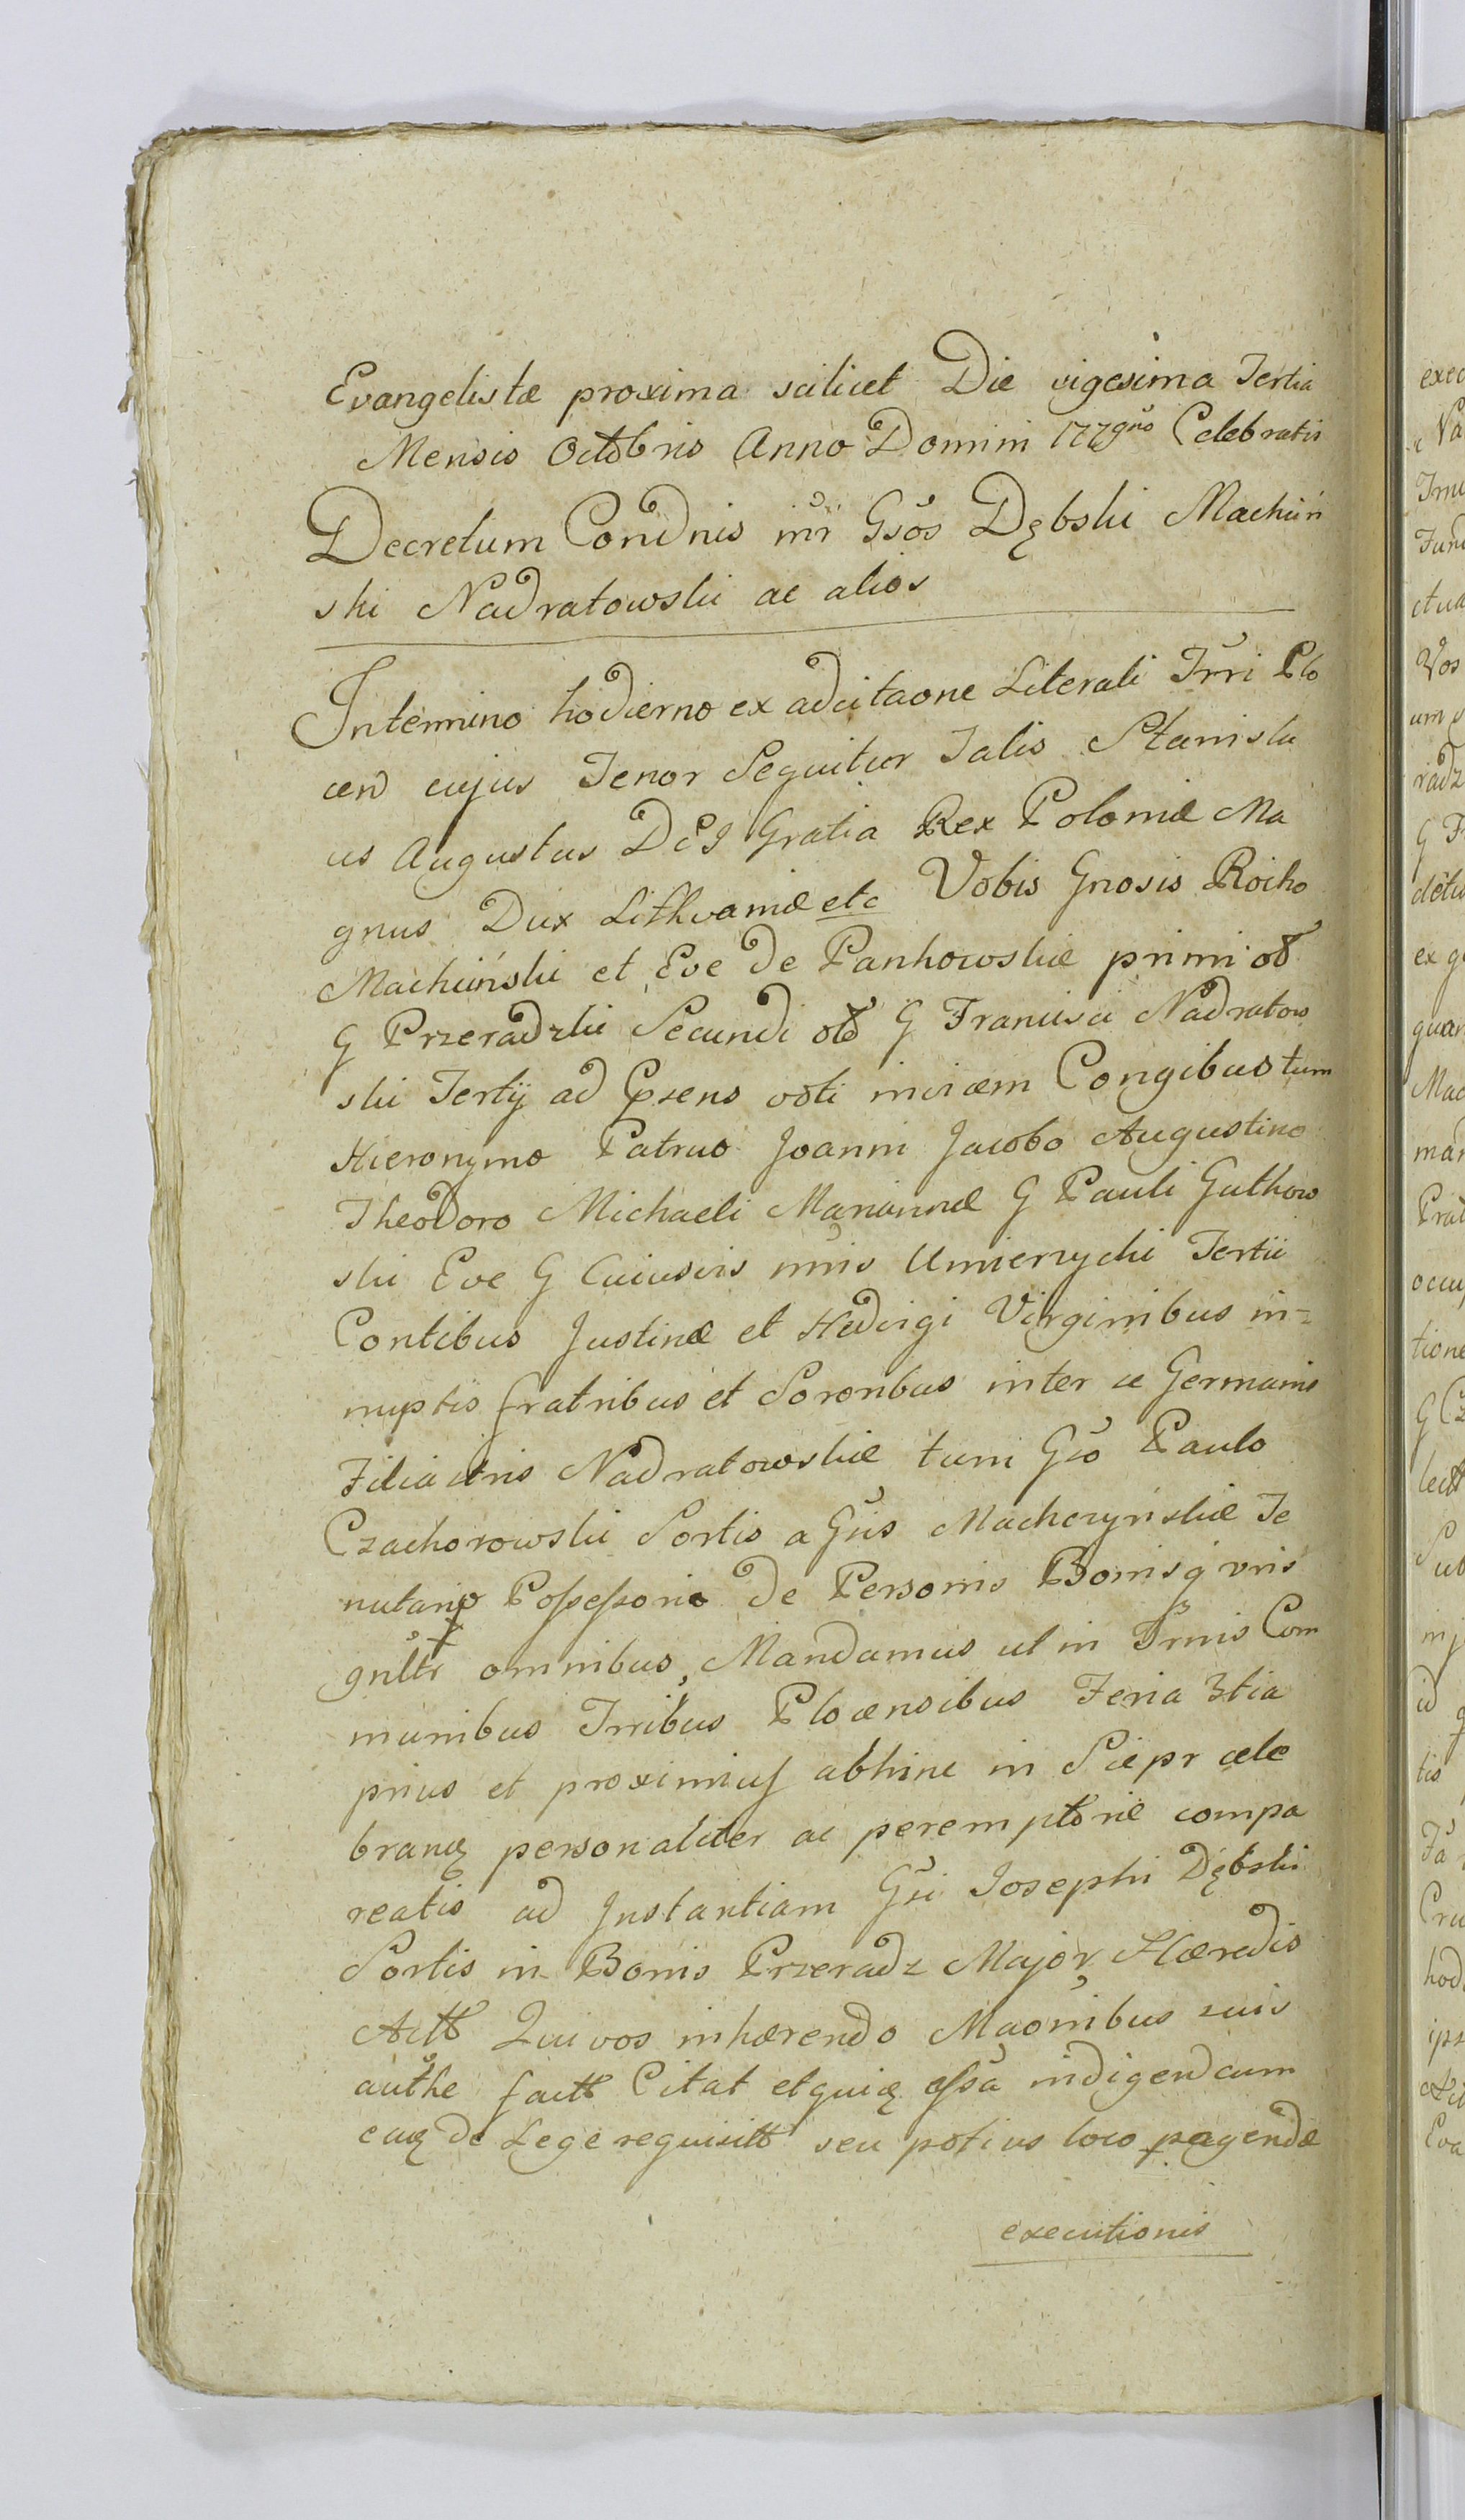 Evangelistæ proxima scilicet Die vigesima Tertia
Mensis Octobris Anno Domini 1779no Celebratis
Decretum Condnis inr Gsos Dębski Machiń
ski Nadratowski ac alios
Intermino hodierno ex adcitaone Literali Trri Plo
cen cujus Tenor Sequitur Talis Stanisla
us Augustus DEI Gratia Rex Poloniæ Ma
gnus Dux Lithvaniæ etc Vobis Gnosis Rocho
Machiński et Eve de Pankowskie primi ob
G Przeradzki Secundi ob G Francisci Nadratow
ski Tertij ad Psens voti invicem Congibus tum
Hieronymo Patruo Joanni Jacobo Augustino
Theodoro Michaeli Mariannæ G Pauli Gutkow
ski Eve G Cuiusvis nnis Umierzycki Tertii
Contibus Justinæ et Hedvigi Virginibus in=
nuptis fratribus et Sororibus inter se Germanis
Filiabris Nadratowskie tum Gso Paulo
Czachorowski Sortis a Gsis Machczyńskie Te
nutario Possessorio de Personis Bonisq vris
gnltr omnibus, Mandamus ut in Trmis Com
munibus Trribus Plocensibus Feria 3tia
prius et proximius abhinc in Sciepr cele
branz personaliter ac peremptorie compa
reatis ad Instantiam Gsi Josephi Dębski
Sortis in Bonis Przeradz Major Hæredis
Actt Qui vos inhærendo Maonibus suis
authe factt Citat et quia essa indigendum
eaq de Lege requisitt seu potius loco pagendæ
executionis
exec
Na
ctua
Vos
um
radz
G
ex
quan
Mac
man
occu
tione
G Cz
in
id
tis
Cru
hod
ips
Eva